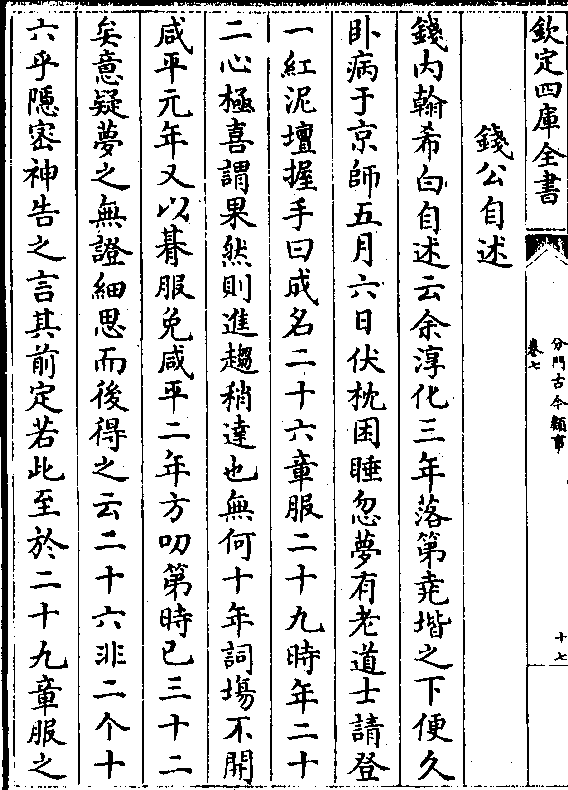 欽定四庫全書
分門古今類事
卷七
十七
錢公自述
錢内翰希白自述云余淳化三年落第堯堦之下便久
卧病于京師五月六日伏枕困睡忽夢有老道士請登
一紅泥壇握手曰成名二十六章服二十九時年二十
二心極喜謂果然則進趨稍達也無何十年詞塲不開
咸平元年又以朞服免咸平二年方叨第時已三十二
矣意疑夢之無證細思而後得之云二十六非二个十
六乎隱密神告之言其前定若此至於二十九章服之